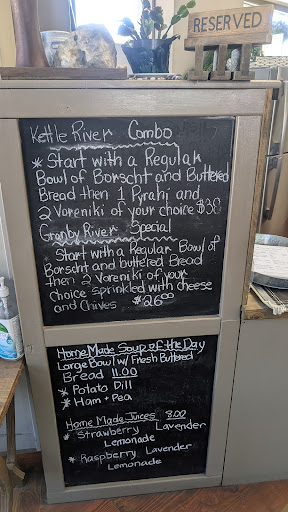 RESERVED
Kettle River Combo
* Start with a Regular
Bowl of Borscht and Buttered
Bread then 1 Pyrahi and
2 Vareniki of your choice $30
Granby River Special
Start with a Regular Bowl of
Borscht and buttered Bread
then 2 Vareniki of your
choice sprinkled with cheese
and Chives $26.00
Home Made Soup of the Day
Large Bowl w/ Fresh Buttered
Bread 11.00
* Potato Dill
* Ham + Pea
Home Made Juices 8.00
* Strawberry Lavender
Lemonade
* Raspberry Lavender
Lemonade